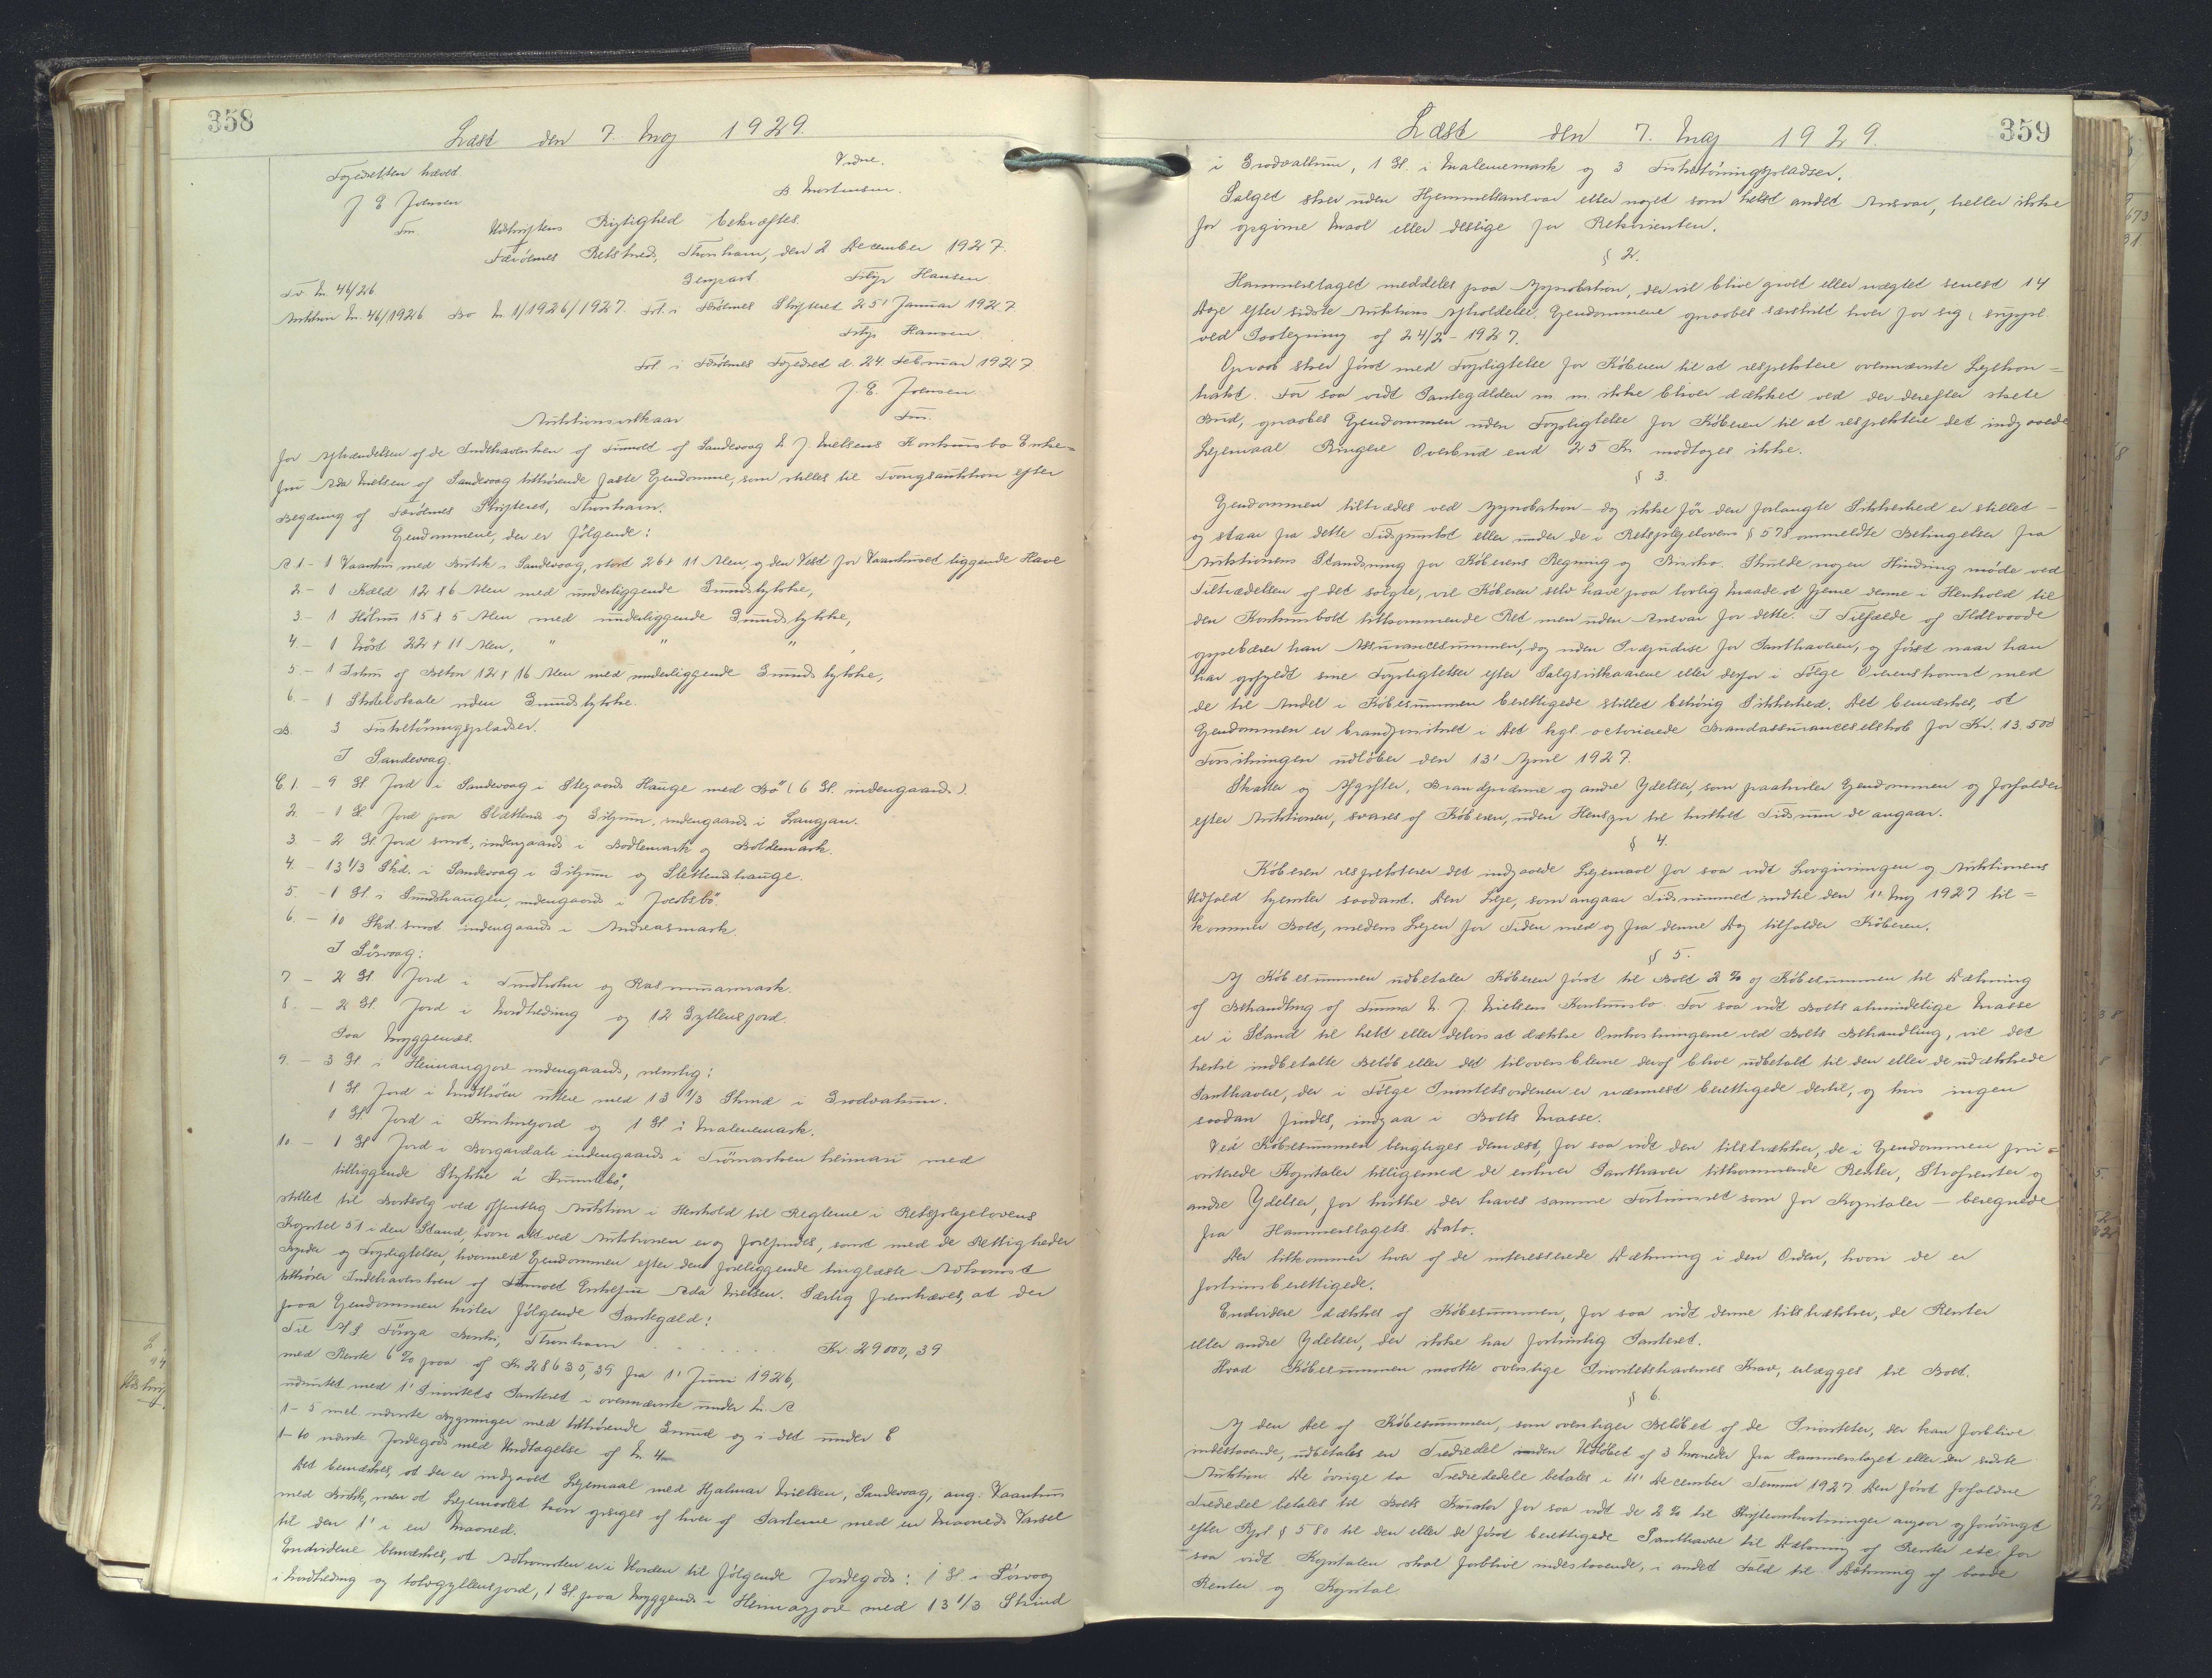 358
Læst den 7. Maj 1929.
Fogedretten hævet. Vidne.
J E Joensen B Mortensen.
Fm.
Udskriftens Rigtighed bekræftes
Færöernes Retskreds, Thorshavn, den 2 December 1927.
Genpart Filip Hansen
Fo Nr. 46/26
Auktion Nr. 46/1926 Bo Nr 1/1926/1927. Fol. i Færöernes Skifteret 25' Januar 1927.
Filip Hansen
Fol. i Færöernes Fogedret d. 24. Februar 1927
J. E. Joensen
Fm.
Auktionsvilkaar
for Afhændelsen af de Indehaversken af Firmaet af Sandevaag N. J. Nielsens Konkursbo Enke=
fru Ada Nielsen af Sandevaag tilhørende faste Ejendomme, som stilles til Tvangsauktion efter
Begæring af Færöernes Skifteret, Thorshavn.
Ejendommene, der er følgende:
A 1 - 1 Vaanhus med Butik i Sandevaag, stort 26 x 11 Alen, og den Vest for Vaanhuset liggende Have
2 - 1 Kæld 12 x 6 Alen med underliggende Grundstykke,
3 - 1 Hölum 15 x 5 Alen med underliggende Grundstykke,
4. - 1 Nöst 22 x 11 Alen, " " "
5. - 1 Ishus af Beton 12 x 16 Alen med underliggende Grundstykke,
6. - 1 Skolelokale uden Grundstykke.
B. 3 Fisketörringspladser.
I Sandevaag.
C 1. - 9 Gl. Jord i Sandevaag i Stegaards Hauge med Bö (6 Gl. indengaards).
2. - 1 Gl. Jord paa Slættend og Giljum, indengaards i Langjan.
3. - 2 Gl. Jord smst, indengaards i Bodlemark og Boldemark.
4. - 13 1/3 Skd. i Sandevaag i Giljum og Slettendshauge.
5. - 1 Gl. i Sundshaugen, indengaards i Jacobsbö.
6. - 10 Skd. smst indengaards i Andreasmark.
I Sörvaag:
7 - 2 Gl. Jord i Tindholm og Rasmusarmark.
8. - 2 Gl. Jord i Nordtredung og 12 Gyllensjord.
Paa Myggenæs.
9. - 3 Gl. i Heimangjore indengaards, nemlig:
1 Gl. Jord i uttere med 13 1/3 Skind i Grodvalum.
1 Gl. Jord i Kristinsjord og 1 Gl i Malenemark.
10. - 1 Gl. Jord i Borgardali indengaards i heimari med
tilliggende Stykke á
stillet til Bortsalg ved offentlig Auktion i Henhold til Reglerne i Retsplejelovens
Kapitel 51 i den Stand, hvori alt ved Auktionen er og forefindes, samt med de Rettigheder
Byrder og Forpligtelser, hvormed Ejendommen efter den foreliggende tinglæste Adkomst
tilhører Indehaversken af Firmaet Enkefru Ada Nielsen. Særlig fremhæves, at der
paa Ejendommen hviler følgende Pantegæld:
Til A/S. Föroya Banki, Thorshavn . . . . . . Kr 29000,39
med Rente 6 % paa af Kr 28635,39 fra 1' Juni 1926,
udrustet med 1' Prioritets Panteret i ovennævnte under Nr. A
1-5 incl. nævnte Bygninger med tilhørende Grund og i det under C
1-10 nævnte Jordegods med Undtagelse af Nr. 4
Det bemærkes, at der er indgaaet Lejemaal med Hjalmar Nielsen, Sandevaag, ang. Vaanhus
med Butik, men at Lejemaalet kan opsiges af hver af Parterne med en Maaneds Varsel
til den 1' i en Maaned.
Endvidere bemærkes, at Adkomsten er i Orden til følgende Jordegods: 1 Gl. i Sörvaag
i Nordtredung og tolvgyllensjord, 1 Gl. paa Myggenæs i Heimangjore med 13 1/3 Skind
359
Læst den 7. Maj 1929.
i Grodvallum, 1 Gl. i Malenemark og 3 Fisketörringspladser.
Salget sker uden Hjemmelsansvar eller noget som helst andet Ansvar, heller ikke
for opgivne Maal eller deslige for Rekvirenten.
§ 2.
Hammerslaget meddeles paa Approbation, der vil blive givet eller nægtet senest 14
Dage efter sidste Auktions Afholdelse. Ejendommene opraabes særskilt hver for sig (suppl.
ved Paategning af 24/2 - 1927.
Opraab sker först med Forpligtelse for Köberen til at respektere ovennævnte Lejekon=
trakt. For saa vidt Pantegælden m. m. ikke bliver dækket ved der derefter skete
Bud, opraabes Ejendommen uden Forpligtelse for Köberen til at respektere det indgaaede
Lejemaal Ringere Overbud end 25 Kr. modtages ikke.
§ 3.
Ejendommen tiltrædes ved Approbation - dog ikke för den forlangte Sikkerhed er stillet -
og staar fra dette Tidspunkt eller under de i Retsplejelovens § 578 ommeldte Betingelser fra
Auktionens Slandsning for Köberens Regning og Risiko. Skulde nogen Hindring möde ved
Tiltrædelsen af det solgte, vil Köberen selv have paa lovlig Maade at fjerne denne i Henhold til
den Konkursboet tilkommende Ret men uden Ansvar for dette. I Tilfælde af Ildsvaade
oppebærer han Assurancesummen, dog uden Præjudice for Panthaverne, og först naar han
har opfyldt sine Forpligtelser efter Salgsvilkaarene eller derfor i Fölge Overenskomst med
de til Andel i Köbesummen berettigede stillet behörig Sikkerhed. Det bemærkes, at
Ejendommen er brandforsikret i Det kgl. octroierede Brandassuranceselskab for Kr. 13.500
Forsikringen udlöber den 13' April 1927.
Skatter og Afgifter, Brandpræmie og andre Ydelser, som paahviler Ejendommen og forfalder
efter Auktionen, svares af Köberen, uden Hensyn til hvilket Tidsrum de angaar.
§ 4.
Köberen respekterer det indgaaede Lejemaal for saa vidt Lovgivningen og Auktionens
Udfald hjemler saadant. Den Leje, som angaar Tidsrummet indtil den 1' Maj 1927 til=
kommer Boet, medens Lejen for Tiden med og fra denne Dag tilfalder Köberen.
§ 5.
Af Köbesummen udbetaler Köberen först til Boet 2 % af Köbesummen til Dækning
af Behandling af Firma N. J. Nielsens Konkursbo. For saa vidt Boets almindelige Masse
er i Stand til helt eller delvis at dække Omkostningerne ved Boets Behandling, vil det
hertil indbetalte Belöb eller det tiloversblevne deraf blive udbetalt til den eller de udækkede
Panthavere, der i Fölge Prioritetsordenen er nærmest berettigede dertil, og hvis ingen
saadan findes, indgaa i Boets Masse.
Ved Köbesummen berigtiges dernæst, for saa vidt den tilstrækker, de i Ejendommen pri=
oriterede Kapitaler tilligemed de enhver Panthaver tilkommende Renter, Strafrenter og
andre Ydelser, for hvilke der haves samme Fortrinsret som for Kapitaler - beregnede
fra Hammerslagets Dato.
Der tilkommer hver af de interesserede Dækning i den Orden, hvori de er
fortrinsberettigede.
Endvidere dækkes af Köbesummen, for saa vidt denne tilstrækker, de Renter
eller andre Ydelser, der ikke har fortrinlig Panteret.
Hvad Köbesummen maatte overstige Prioritetshavernes Krav, erlægges til Boet.
§ 6.
Af den Del af Köbesummen, som overstiger Belöbet af de Prioriteter, der kan forblive
indestaaende, udbetales en Trediedel inden Udlöbet af 3 Maaneder fra Hammerslaget eller den sidste
Auktion. De övrige to Trediedele betales i 11' December Termin 1927 Den först forfaldne
Trediedel betales til Boets Kurator for saa vidt de 2 % til Skifteomkostninger angaar og forövrigt
efter Rpl § 580 til den eller de först berettigede Panthavere til Dækning af Renter etc. for
saa vidt Kapitalen skal forblive indestaaende, i andet Fald til Dækning af baade
Renter og Kapital.